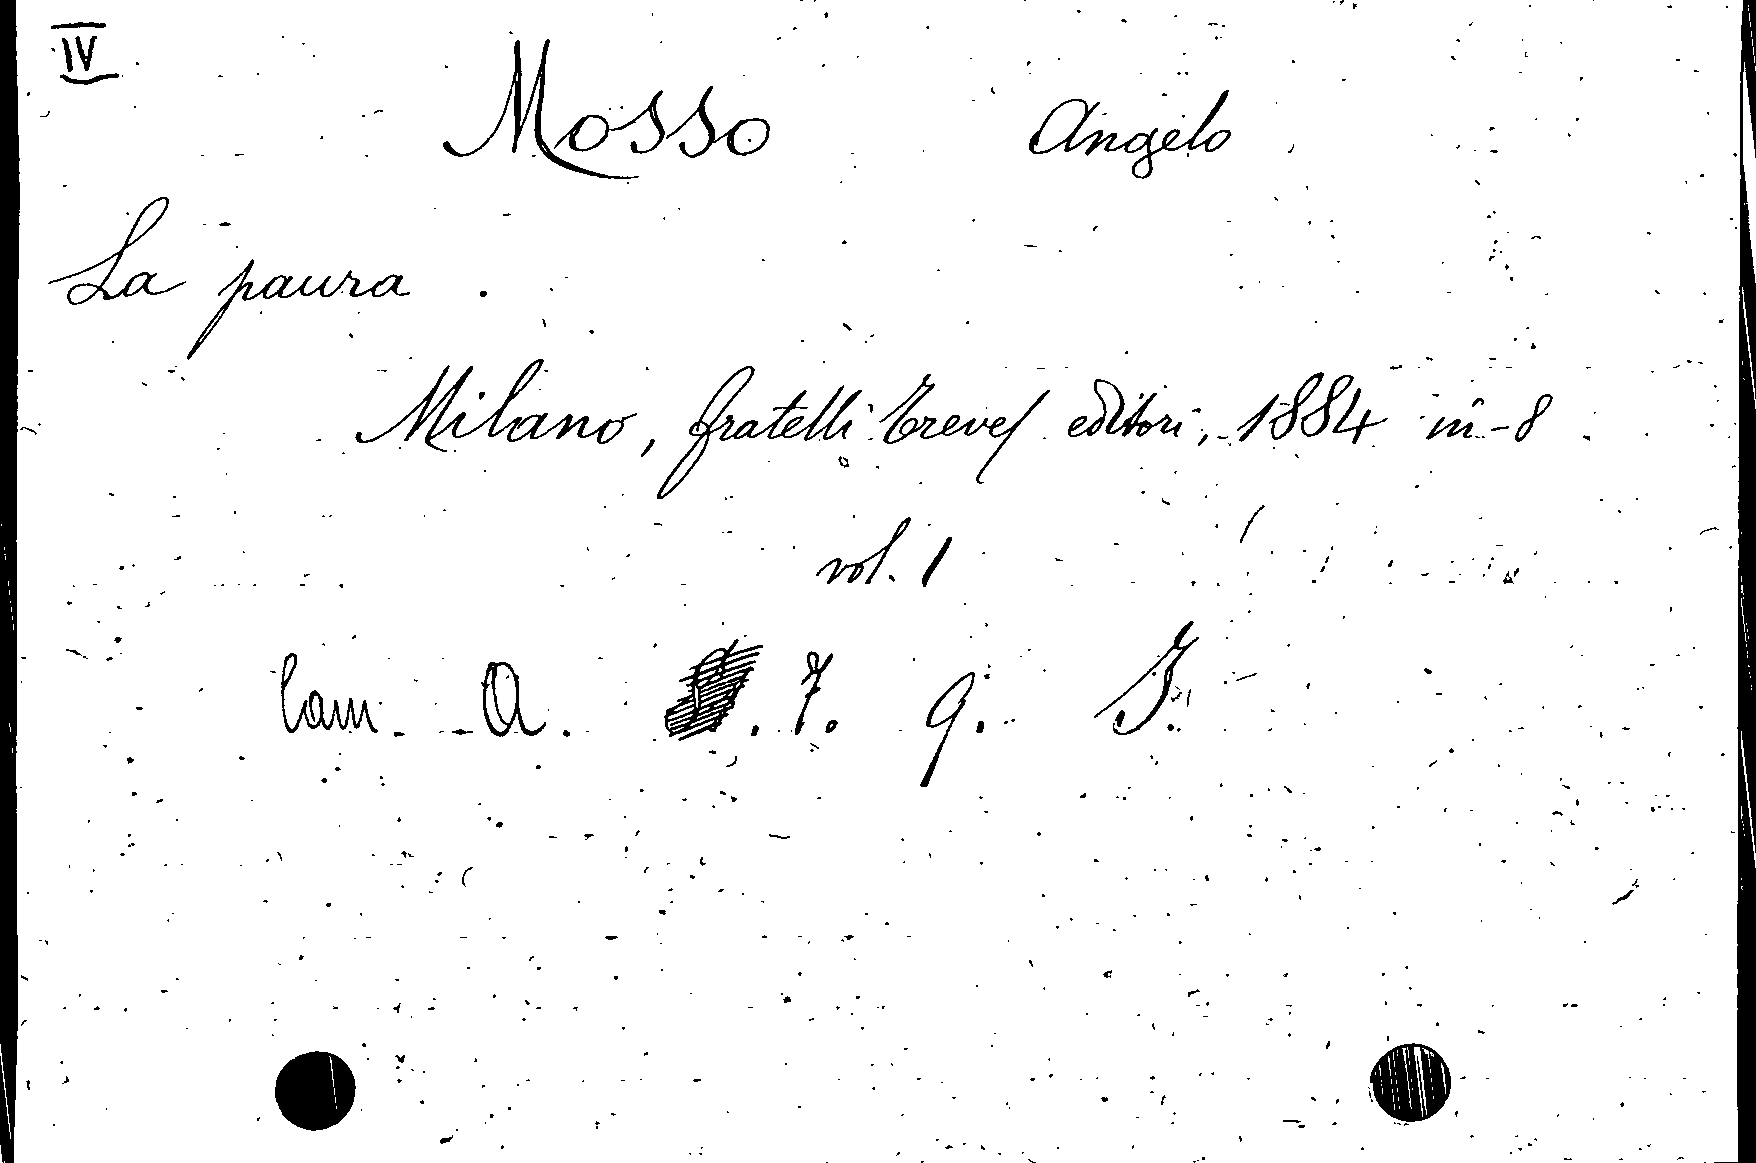 IV
Mosso Angelo
La paura.
Milano, fratelli Treves editori, 1884 in-8
vol. 1
Cam. A. 7. 9. I.